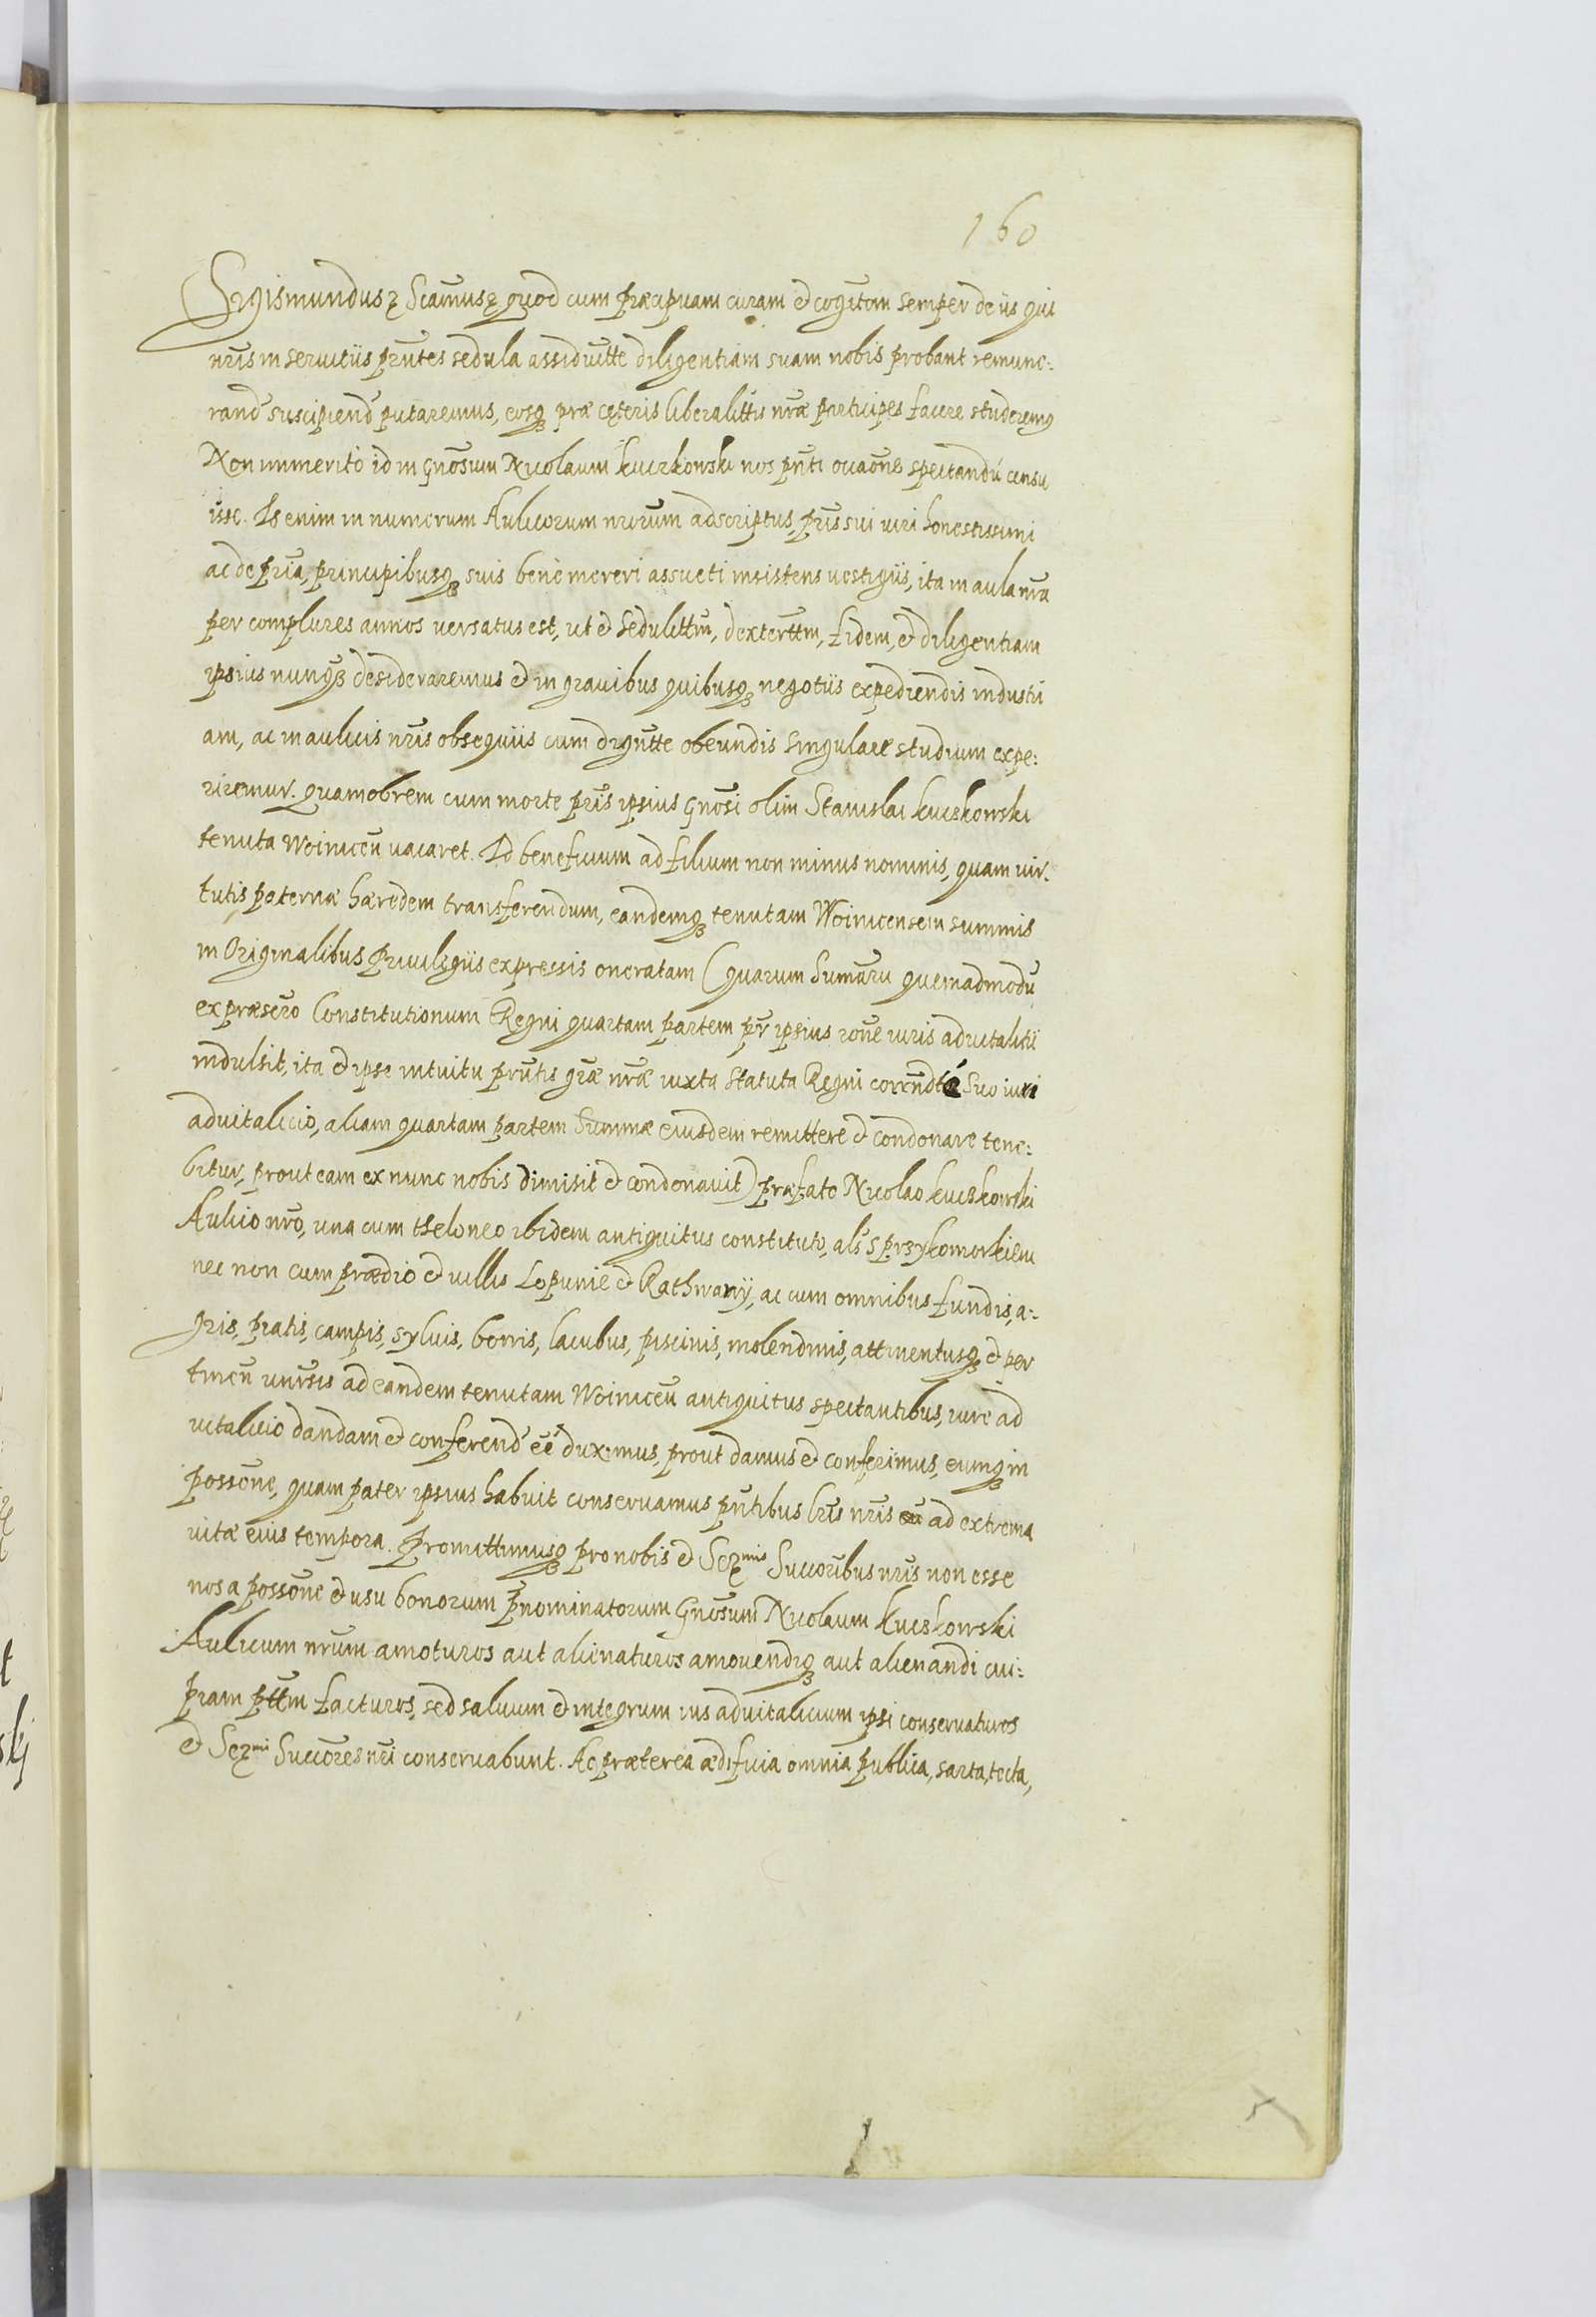 160
Sigismundus ꝛ Scām̃usꝛ quod cum præcipuam curam et cogit̃om semper de iis qui
nr̃is in seruitiis pr̃ntes sedula assiduit̃te diligentiam suam nobis probant remune:
rand' suscipiend' putaremus, eosq₃ præ cęteris liberalit̃tis nr̃æ participes facere studeremꝰ
Non immerito id in Gñosum Nicolaum Kuczkowski nos pñti ocaõne spectandũ censu
isse. Is enim in numerum Aulicorum nr̃orum adscriptus, pr̃is sui viri honestissimi
ac de pr̃ia, principibusq₃ suis bene mereri assueti insistens vestigiis, ita in aula nr̃a
per complures annos versatus est, ut et sedulit̃tm, dexterit̃tm, fidem, et diligentiam
ipsius nunq₃ desideraremus et in grauibus quibusq₃ negotiis expediendis industri
am, ac in aulicis nr̃is obsequiis cum dignit̃te obeundis singulare studium expe:
riremur. quamobrem cum morte pr̃is ipsius Gñosi olim Stanislai Kuczkowski
tenuta Woiniceñ vacaret. Id beneficium ad filium non minus nominis, quam vir:
tutis paternæ hæredem transferendum, eandemq₃ tenutam Woinicensem summis
in Originalibus Priuilegiis expressis oneratam (quarum Sum̃aru quemadmodũ
ex præscr̃o Constitutionum Regni quartam partem pr̃ ipsius rõne iuris aduitalitii
indulsit, ita et ipse intuitu pr̃ntis gr̃æ nr̃æ iuxta statuta Regni suo iuri
aduitalicio, aliam quartam partem Summæ eiusdem remittere et condonare tene:
bitur, prout eam ex nunc nobis dimisit et condonauit) præfato Nicolao Kuczkowski
Aulico nr̃o, una cum theloneo ibidem antiquitus constituto, als s przykomorkiem
nec non cum prædio et villis Łopunie et Rathnawy, ac cum omnibus fundis, a:
gris, pratis, campis, syluis, borris, lacubus, piscinis, molendinis, attinentiisq₃ et per
tineñ uniũsis ad eandem tenutam Woiniceñ antiquitus spectantibus, iure ad
uitalicio dandam et conferend' ẽẽ duximus, prout damus et conferimus, eumq₃ in
possõne, quam pater ipsius habuit conseruamus pñtibus lr̃is nr̃is ad extrema
vitæ eius tempora. Promittimusq₃ pro nobis et Serᵐⁱˢ Succoribus nr̃is non esse
nos a possõne et usu bonorum p̃nominatorum Gñosum Nicolaum Kuczkowski
Aulicum nr̃um amoturos aut alienaturos amouendiq₃ aut alienandi cui:
piam pt̃tm facturos, sed saluum et integrum ius aduitalicium ipsi conseruaturos
et Serᵐⁱ Succores nr̃i conseruabunt. Ac præterea ædificia omnia publica, sarta, tecta,